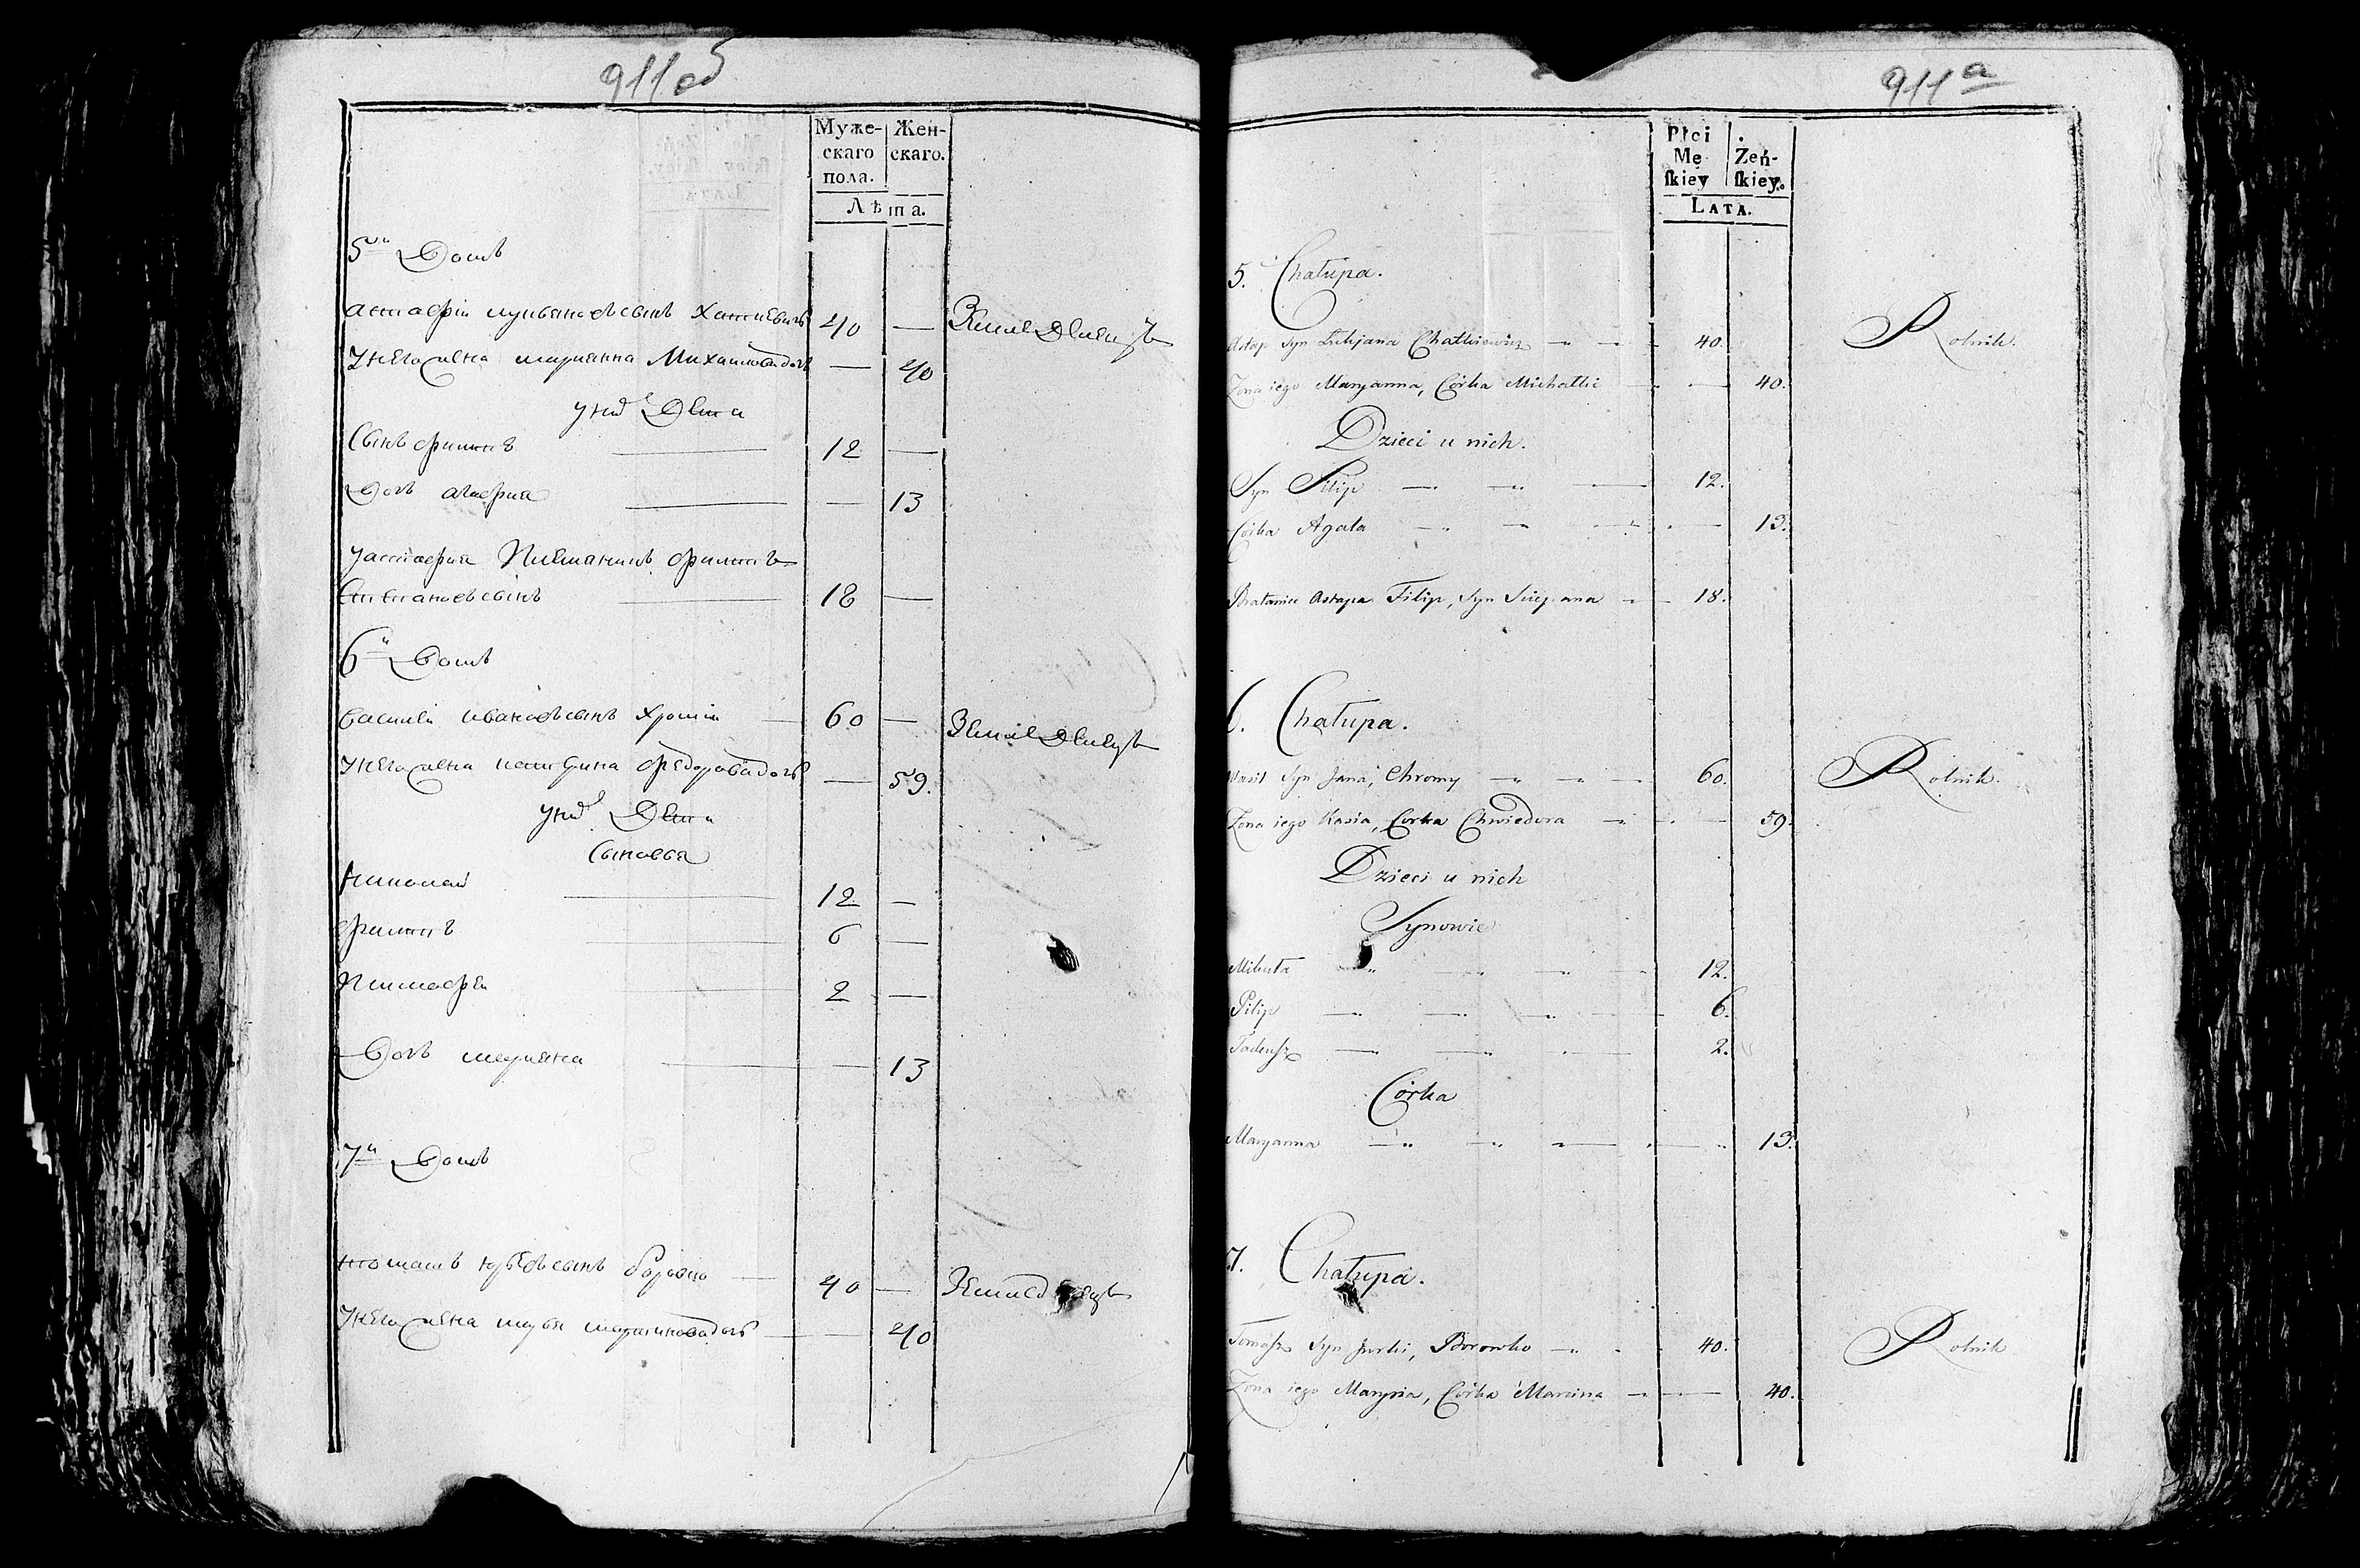 911об
Муже-
скаго
пола.
Жен-
скаго.
Лѣта.
5й Домъ
Астафій Лукьяновъ сынъ Хаткевичъ 40 — Земледѣлецъ
У него жена Марианна Михайлова дочь — 40
У нихъ Дѣти
Сынъ Филипъ 12 —
Дочь — 13
У Астафия Племяникъ Филипъ
Степановъ сынъ 18 —
6й Домъ
Василей Ивановъ сынъ Хромій 60 — Земледѣлецъ
У него жена Катерина Федорова дочь — 59.
У нихъ Дѣти
Сыновья
Николай 12 —
Филипъ 6 —
Тимофей 2 —
Дочь Марияна — 13
7й Домъ
Томашъ Юрьевъ сынъ Боровко 40 — Земледѣлецъ
У него жена Марья Мартинова дочь — 40
911а
Płci
Mę
skiey
Żeń-
skiey.
LATA.
5. Chałupa.
Astap Syn Łukjana Chatkiewicz 40. Rolnik.
Zona iego Maryanna, Córka Michałki 40.
Dzieci u nich.
Syn Pilip 12.
Córka Agata 13.
Bratanice Astapa Filip, Syn Sciepana 18.
6. Chałupa.
Wasil Syn Jana, Chromy 60. Rolnik.
Zona iego Kasia, Corka Chwiedora 59.
Dzieci u nich
Synowie
Mikuta 12.
Pilip 6.
Tadeusz 2.
Córka
Maryanna 13.
7. Chałupa.
Tomasz Syn Jurki, Borowko 40. Rolnik
Zona iego Marysia, Córka Marcina 40.